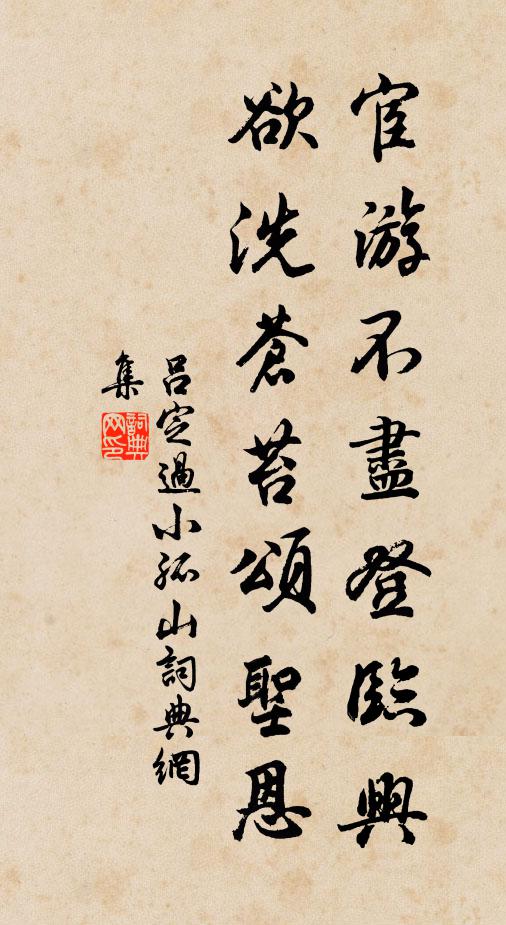 宦游不盡登臨興
欲洗蒼苔頌聖恩
吕定過小孤山詞典網
集
詞典网印